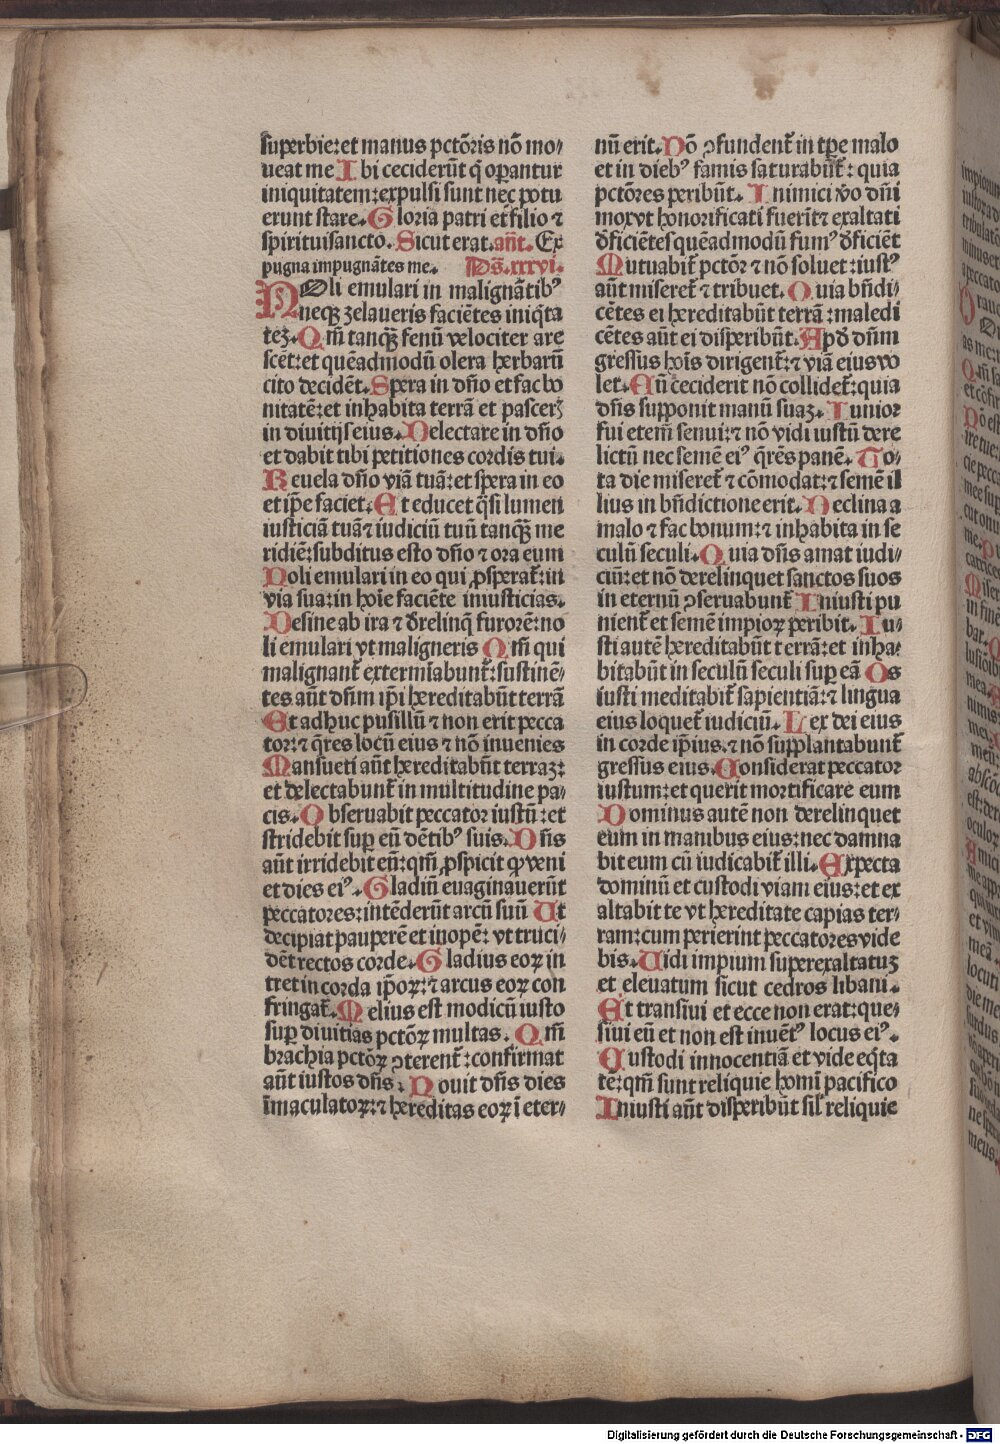 superbie: et manus pctōris nō mo/
ueat me Ibi ceciderūt q̄ oꝑantur
iniquitatem: expulsi sunt nec potu
erunt stare. Gloria patri et filio ⁊
spirituisancto. Sicut erat. añt. Ex
pugna impugnātes me. Ps̄. xxxvi.
NOli emulari in malignātibꝰ
necqꝫ zelaueris faciētes iniq̄ta
teꝫ. Qm̄ tanqꝫ fenū velociter are
scēt: et quēadmodū olera herbarū
cito decidēt. Spera in dño et fac bo
nitatē: et inhabita terrā et pascerꝭ
in diuitijs eius. Delectare in dño
et dabit tibi petitiones cordis tui.
Reuela dño viā tuā: et spera in eo
et ip̄e faciet. Et educet q̄si lumen
iusticiā tuā ⁊ iudiciū tuū tanqꝫ me
ridiē: subditus esto dño ⁊ ora eum
Noli emulari in eo qui ꝓsperat᷑: in
via sua: in hoīe faciēte iniusticias.
Desine ab ira ⁊ d̄relinq̄ furorē: no
li emulari vt maligneris Qm̄ qui
malignant᷑ extermīabunt᷑: sustinē/
tes aūt dñm ip̄i hereditabūt terrā
Et adhuc pusillū ⁊ non erit pecca
tor: ⁊ q̄res locū eius ⁊ nō inuenies
Mansueti aūt hereditabūt terraꝫ:
et delectabunt᷑ in multitudine pa/
cis. Obseruabit peccator iustū: et
stridebit suꝑ eū dētibꝰ suis. Dñs
aūt irridebit eū: qm̄ ꝓspicit ꝙ veni
et dies eiꝰ. Gladiū euaginauerūt
peccatores: intēderūt arcū suū Ut
decipiat pauperē et inopē: vt truci/
dēt rectos corde. Gladius eoꝝ in
tret in corda ip̄oꝝ: ⁊ arcus eoꝝ con
fringat᷑. Melius est modicū iusto
suꝑ diuitias pctōꝝ multas. Qm̄
brachia pctōꝝ ꝯterent᷑: confirmat
aūt iustos dñs: Nouit dñs dies
īmaculatoꝝ: ⁊ hereditas eoꝝ ī eter/
nū erit. Nō ꝯfundent᷑ in tp̄e malo
et in diebꝰ famis saturabūt᷑: quia
pctōres peribūt. Inimici v̄o dñi
mox vt honorificati fuerīt ⁊ exaltati
d̄ficiētes quēadmodū fumꝰ d̄ficiēt
Mutuabit᷑ pctōr ⁊ nō soluet: iustꝰ
aūt miseret᷑ ⁊ tribuet. Quia bñdi/
cētes ei hereditabūt terrā: maledi
cētes aūt ei disperibūt. Apd̄ dñm
gressus hoīs dirigent᷑: ⁊ viā eius vo
let. Cū ceciderit nō collidet᷑: quia
dñs supponit manū suaꝫ. Iunior
fui etem̄ senui: ⁊ nō vidi iustū dere
lictū nec semē eiꝰ q̄rēs panē. To/
ta die miseret᷑ ⁊ cōmodat: ⁊ semē il
lius in bñdictione erit. Declina a
malo ⁊ fac bonum: ⁊ inhabita in se
culū seculi. Quia dñs amat iudi/
ciū: et nō derelinquet sanctos suos
in eternū ꝯseruabunt᷑ Iniusti pu
nient᷑ et semē impioꝝ peribit. Iu/
sti autē hereditabūt terrā: et inha/
bitabūt in seculū seculi suꝑ eā Os
iusti meditabit᷑ sapientiā: ⁊ lingua
eius loquet᷑ iudiciū. Lex dei eius
in corde ip̄ius. ⁊ nō supplantabunt᷑
gressus eius. Considerat peccator
iustum: et querit mortificare eum
Dominus autē non derelinquet
eum in manibus eius: nec damna
bit eum cū iudicabit᷑ illi. Expecta
dominū et custodi viam eius: et ex
altabit te vt hereditate capias ter/
ram: cum perierint peccatores vide
bis. Uidi impium superexaltatuꝫ
et eleuatum sicut cedros libani.
Et transiui et ecce non erat: que/
siui eū et non est inuētꝰ locus eiꝰ.
Custodi innocentiā et vide eq̄ta
tē: qm̄ sunt reliquie homī pacifico
Iniusti aūt disperibūt sil̄ reliquie
Digitalisierung gefördert durch die Deutsche Forschungsgemeinschaft - DFG